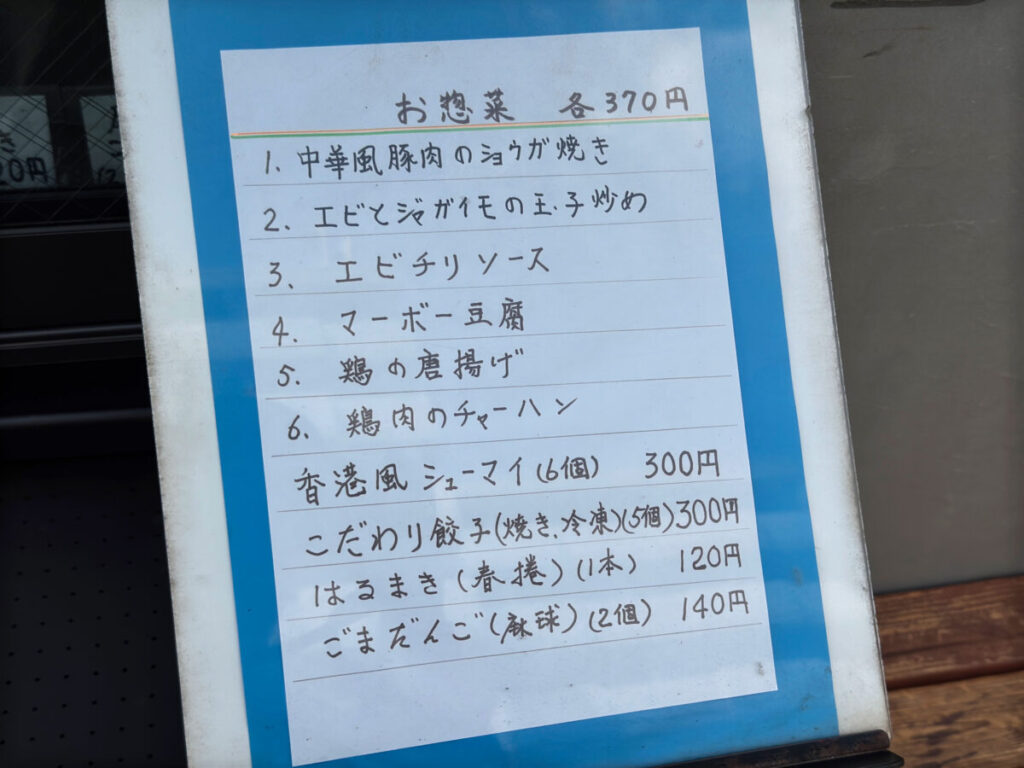 お惣菜 各370円
1. 中華風豚肉のショウガ焼き
2. エビとジャガイモの玉子炒め
3. エビチリソース
4. マーボー豆腐
5. 鶏の唐揚げ
6. 鶏肉のチャーハン
香港風シューマイ(6個) 300円
こだわり餃子(焼き、冷凍)(5個)300円
はるまき(春捲)(1本) 120円
ごまだんご(麻球)(2個) 140円